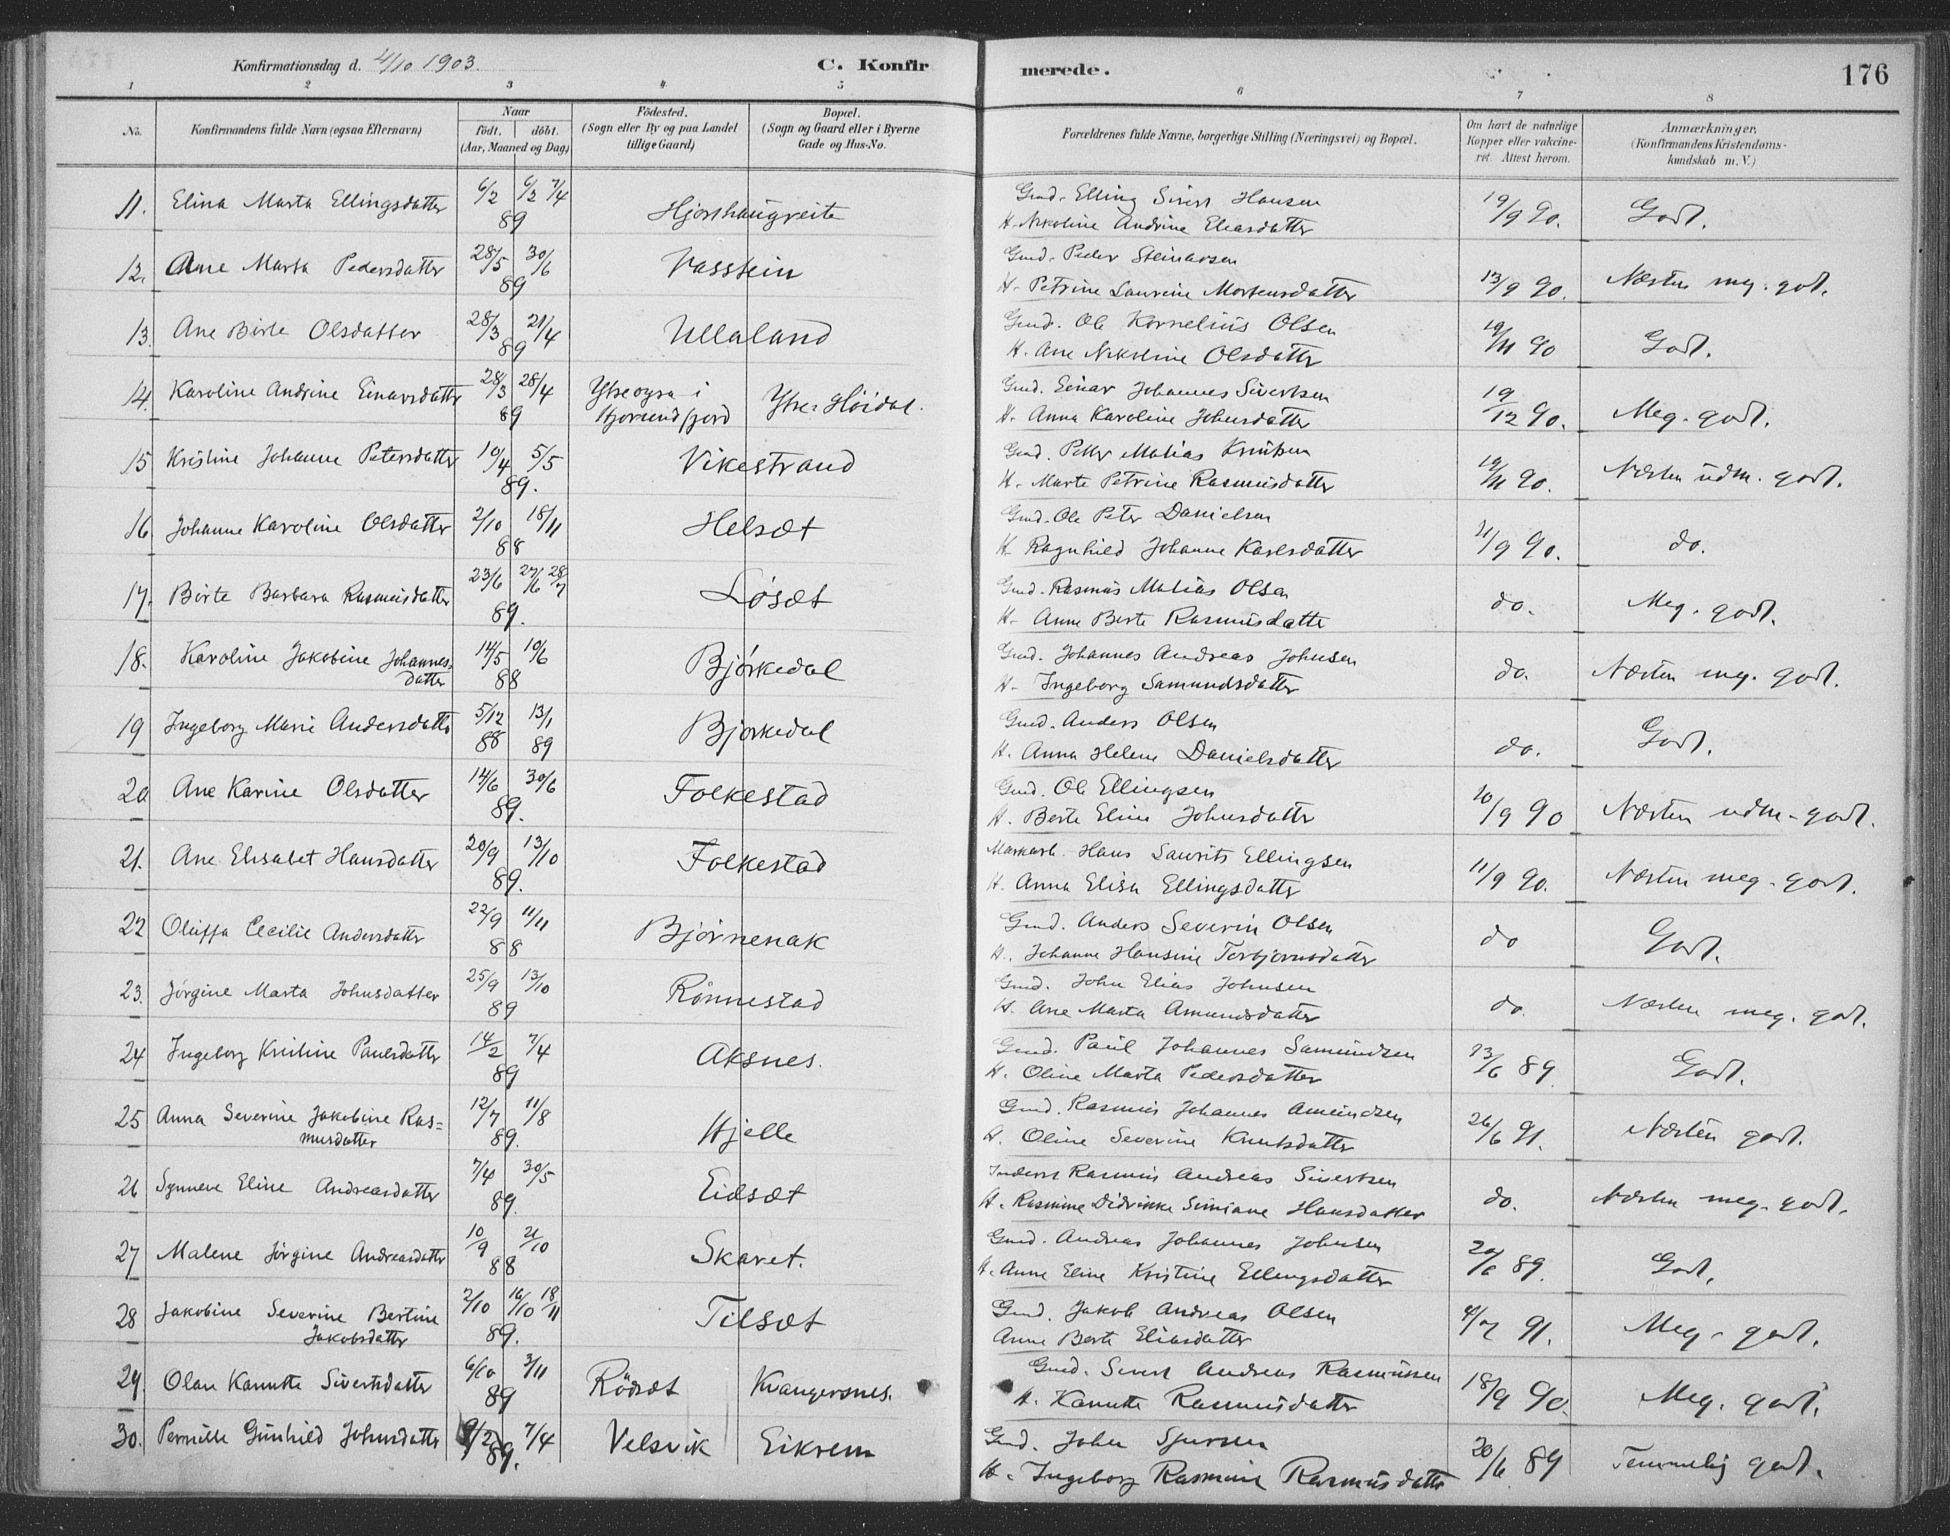 Konfirmationsdag d. 4/10 1903.
C. Konfirmerede.
176
1 2 3 4 5 6 7 8
No.
Konfirmandens fulde Navn (ogsaa Efternavn)
Naar
födt. döbt.
(Aar, Maaned og Dag)
Födested.
(Sogn eller By og paa Landet
tillige Gaard)
Bopæl.
(Sogn og Gaard eller i Byerne
Gade og Hus-No.
Forældrenes fulde Navne, borgerlige Stilling (Næringsvei) og Bopæl.
Om havt de naturlige
Kopper eller vakcine-
ret. Attest herom.
Anmærkninger,
(Konfirmandens Kristendoms-
kundskab m. V.)
11. Elina Marta Ellingsdatter 6/2 6/2 7/4 89 Hjorthaugreite Gmd. Elling Sivert Hansen 19/9 90. Godt.
H. Nikoline Andrine Eliasdatter
12. Ane Marta Pedersdatter 28/5 30/6 89 Vasstein Gmd. Peder Steinarsen 13/9 90. Næsten meg. godt.
H. Petrine Laurine Mortensdatter
13. Ane Birte Olsdatter 28/3 21/4 89 Ullaland Gmd. Ole Kornelius Olsen 19/11 90 Godt.
H. Ane Nikoline Olsdatter
14. Karoline Andrine Einarsdatter 28/3 28/4 89 Ytre Høidal. Gmd. Einar Johannes Sivertsen 19/12 90. Meg. godt.
H. Anna Karoline Johnsdatter
15 Kristine Johanne Petersdatter 10/4 5/5 89. Vikestrand Gmd. Petter Matias Knutsen 19/11 90. Næsten udm. godt.
H. Marte Petrine Rasmusdatter
16 Johanne Karoline Olsdatter 2/10 18/11 88 Helsæt Gmd. Ole Peter Danielsen 11/9 90. do.
H. Ragnhild Johanne Karlsdatter
17. Birte Barbara Rasmusdatter 23/6 27/6 28/7 89. Løsæt Gmd. Rasmus Matias Olsen do. Meg. godt.
H. Anne Berte Rasmusdatter
18. Karoline Jakobine Johannes-
datter 14/5 10/6 88 Bjørkedal Gmd. Johannes Andreas Johnsen do. Næsten meg. godt.
H. Ingeborg Samundsdatter
19 Ingeborg Marie Andersdatter 5/12 88 13/1 89 Bjørkedal Gmd. Anders Olsen do. Godt.
H. Anna Helene Danielsdatter
20 Ane Karine Olsdatter 14/6 30/6 89. Folkestad Gmd. Ole Ellingsen 10/9 90 Næsten udm. godt.
H. Berte Eline Johnsdatter
21. Ane Elisabet Hansdatter 20/9 13/10 89. Folkestad Hans Laurits Ellingsen 11/9 90. Næsten meg. godt.
H. Anna Elisa Ellingsdatter
22 Oluffa Cecilie Andersdatter 22/9 11/11 88 Bjørnenak Gmd. Anders Severin Olsen do Godt.
H. Johanne Hansine Torbjørnsdatter
23. Jørgine Marta Johnsdatter 25/9 13/10 89 Rønnestad Gmd. John Elias Johnsen do. Næsten meg. godt.
H. Ane Marta Amundsdatter
24 Ingeborg Kristine Paulsdatter 14/2 7/4 89 Aksnes. Gmd. Paul Johannes Samundsen 13/6 89. Godt.
H. Oline Marta Pedersdatter
25 Anna Severine Jakobine Ras=
musdatter 12/7 11/8 89. Hjelle Gmd. Rasmus Johannes Amundsen 26/6 91. Næsten godt.
H. Oline Severine Knutsdatter
26 Synneve Eline Andreasdatter 7/4 30/5 89. Eidsæt Inderst Rasmus Andreas Sivertsen do. Næsten meg. godt.
H. Rasmine Didrikke Simiane Hansdatter
27 Malene Jørgine Andreasdatter 10/9 21/10 88 Skaret. Gmd. Andreas Johannes Johnsen 20/6 89. Godt.
H. Anne Eline Kristine Ellingsdatter
28 Jakobine Severine Bertine
Jakobsdatter 2/10 16/10 18/11 89. Tilsæt Gmd. Jakob Andreas Olsen 4/7 91. Meg. godt.
Anne Berte Eliasdatter
29. Olave Kanutte Sivertsdatter 6/10 3/11 89 Rødsæt Kvangersnes. Gmd. Sivert Andreas Rasmussen 18/9 90. Meg. godt.
H. Kanutte Rasmusdatter
30. Pernille Gunhild Johnsdatter 9/2 7/4 89. Velsvik Eikrem Gmd. John Sjursen 20/6 89 Temmelig godt.
H. Ingeborg Rasmine Rasmusdatter